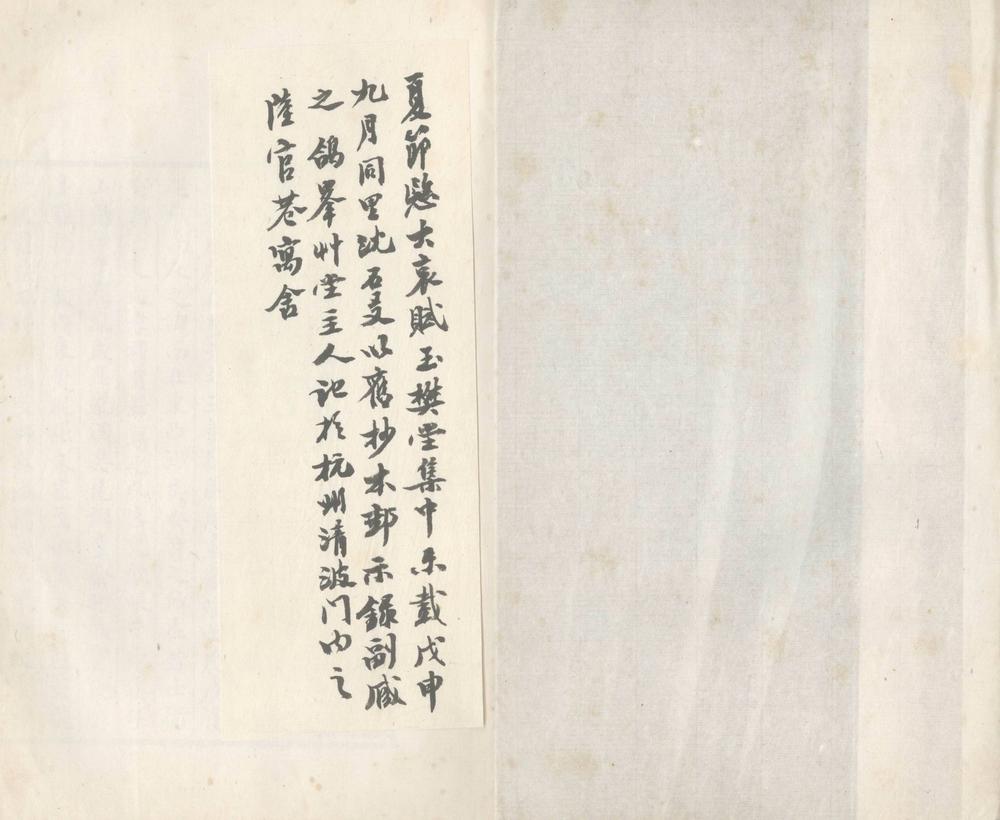 夏節愍大哀賦玉樊堂集中未載戊申
九月同里沈石叟以舊抄本郵示錄副臧
之鴿峯艸堂主人記於杭州清波门内之
陸官巷寓舍